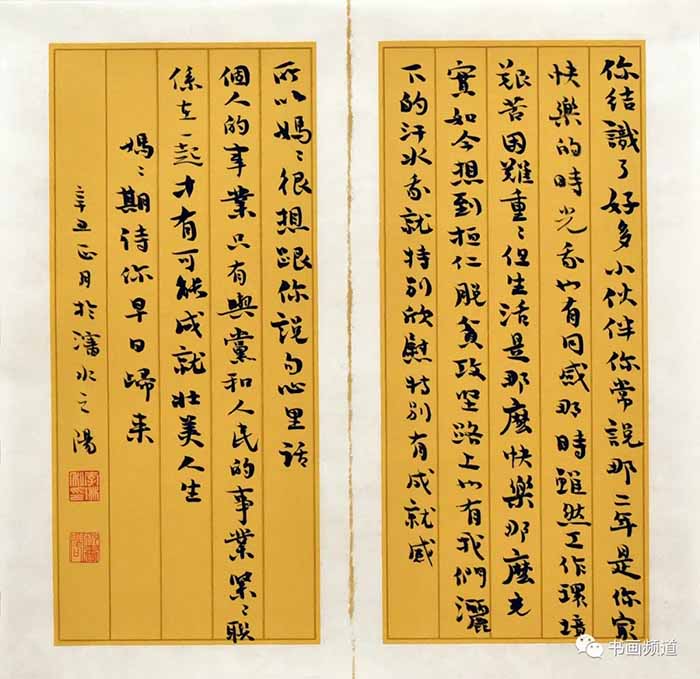 你结識了好多小伙伴你常説那二年是你家
快樂的時光我也有同感那時雖然工作環境
艱苦困難重〻但生活是那麽快樂那麽充
實如今想到桓仁脱貧攻坚路上也有我們灑
下的汗水我就特别欣慰特别有成就感
所以媽〻很想跟你説句心里話
個人的事業只有與黨和人民的事業緊〻聯
係在一起才有可能成就壮美人生
媽〻期待你早日歸来
辛丑正月於瀋水之陽
书画频道